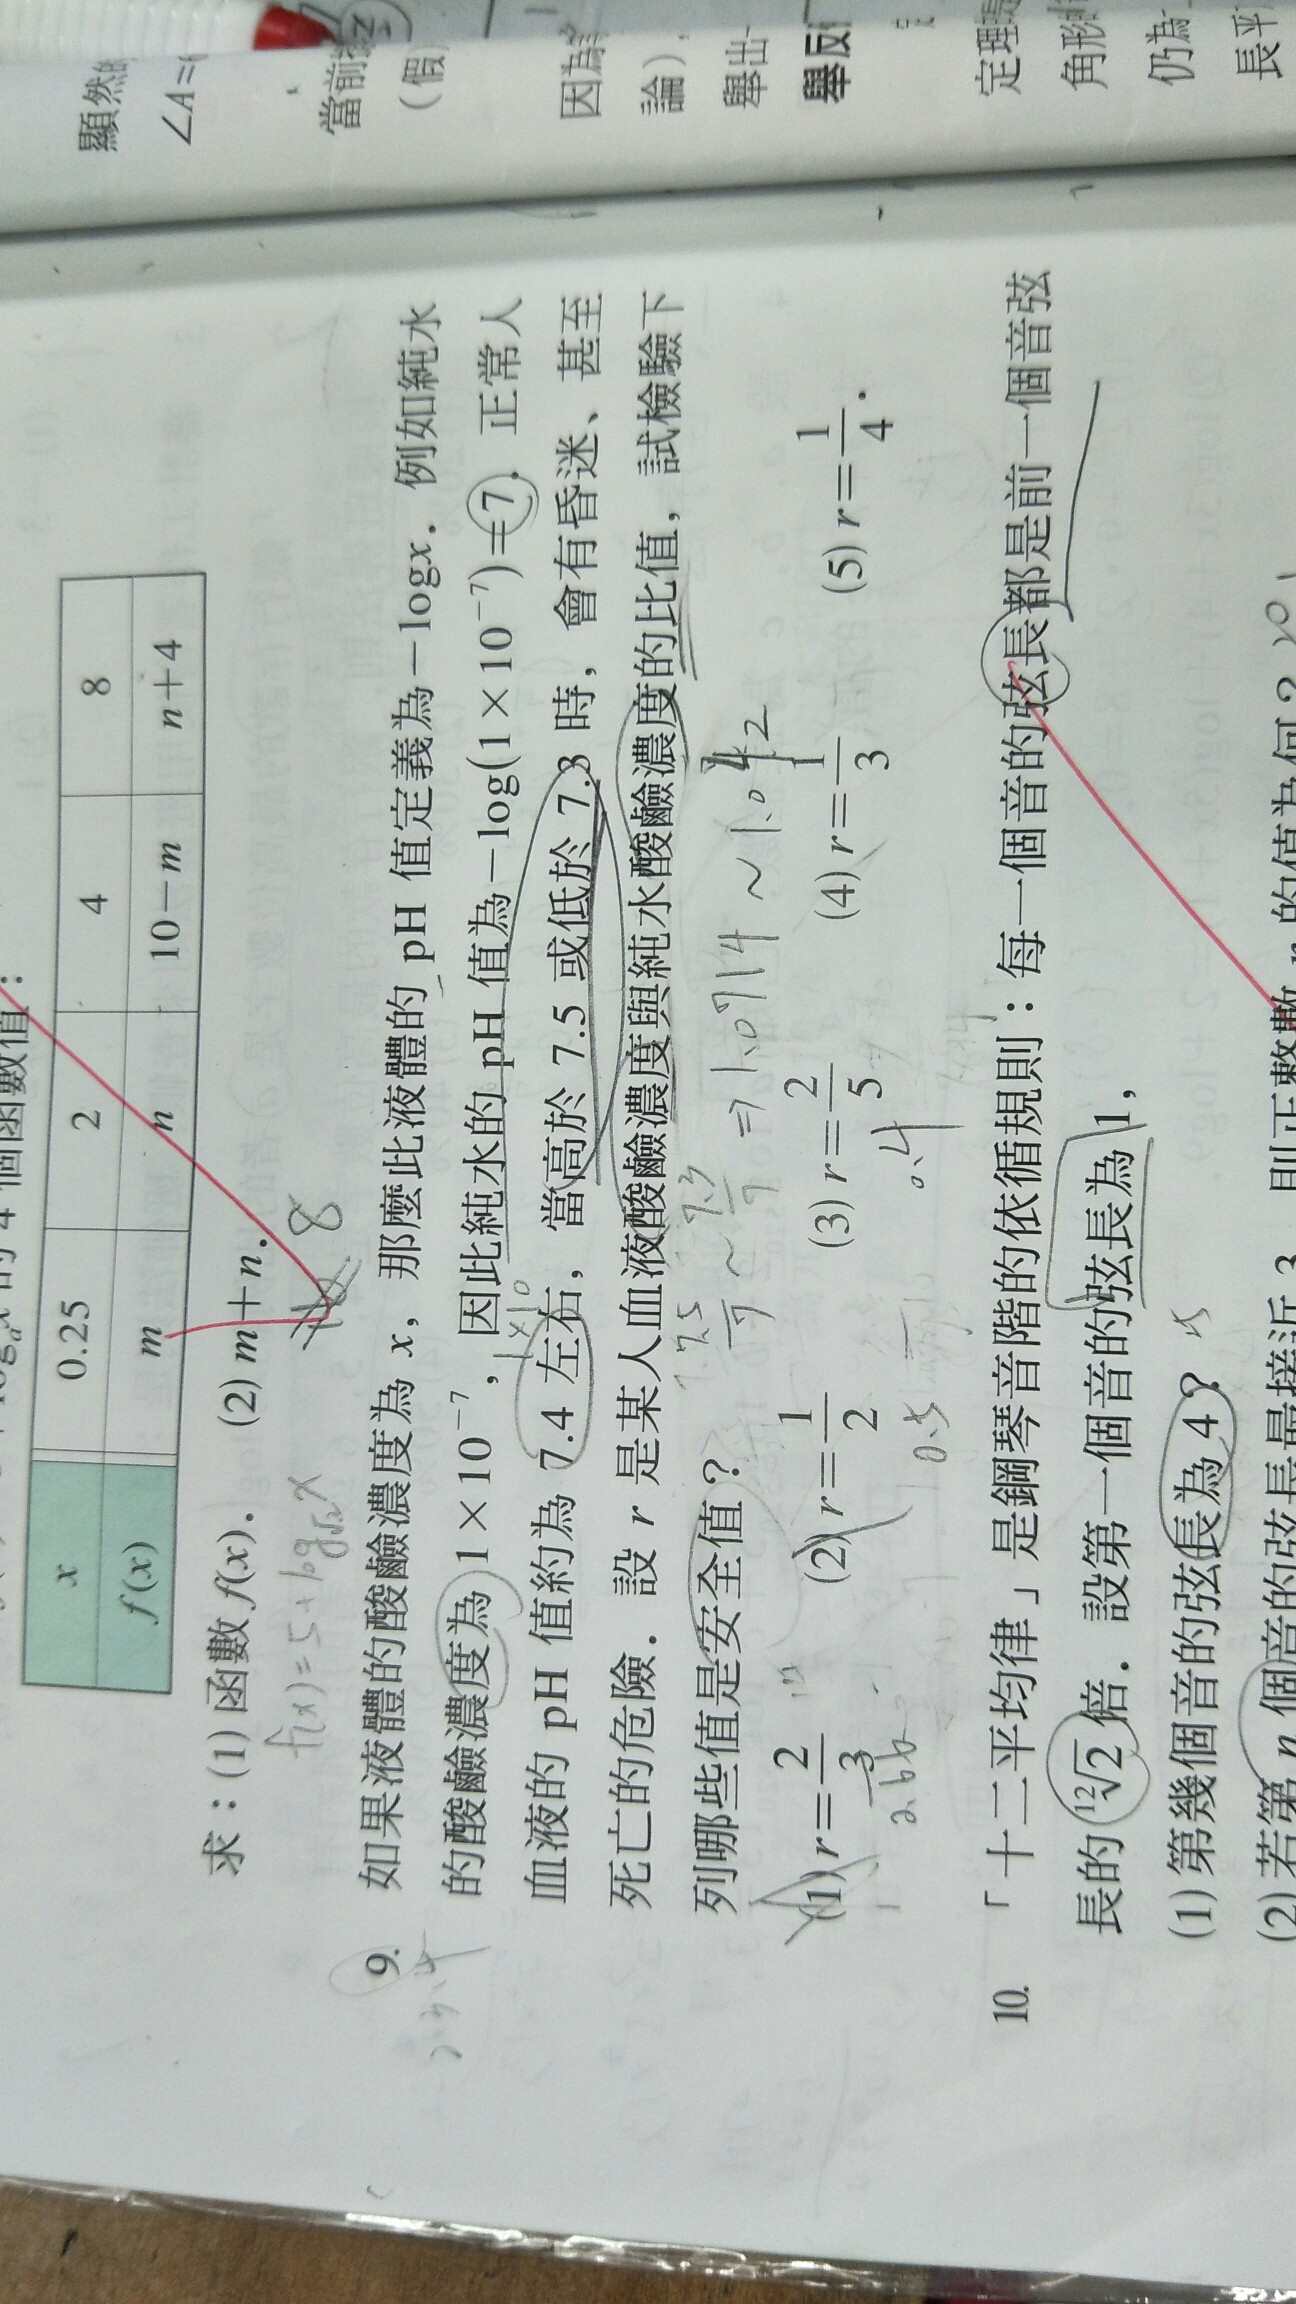 顯然
∠A=
當前
（假
因為
論），
舉出一
舉反
定理
角形
仍為一
長平
的 4 個函數值：
x 0.25 2 4 8
f(x) m n 10−m n+4
求：(1) 函數 f(x)． (2) m+n．
f(x)=5+log√2 x
8
9. 如果液體的酸鹼濃度為 x，那麼此液體的 pH 值定義為−logx．例如純水
的酸鹼濃度為 1×10⁻⁷，因此純水的 pH 值為−log(1×10⁻⁷)=7．正常人
血液的 pH 值約為 7.4 左右，當高於 7.5 或低於 7.3 時，會有昏迷、甚至
死亡的危險．設 r 是某人血液酸鹼濃度與純水酸鹼濃度的比值，試檢驗下
列哪些值是安全值？
7.5/7 ~ 7.3/7 ⇒ 1.0714 ~ 1.042
(1) r=2/3 (2) r=1/2 (3) r=2/5 (4) r=1/3 (5) r=1/4．
0.5 0.4
10. 「十二平均律」是鋼琴音階的依循規則：每一個音的弦長都是前一個音弦
長的 ¹²√2 倍．設第一個音的弦長為 1，
(1) 第幾個音的弦長為 4？
(2) 若第 n 個音的弦長最接近 3，則正整數 n 的值為何？